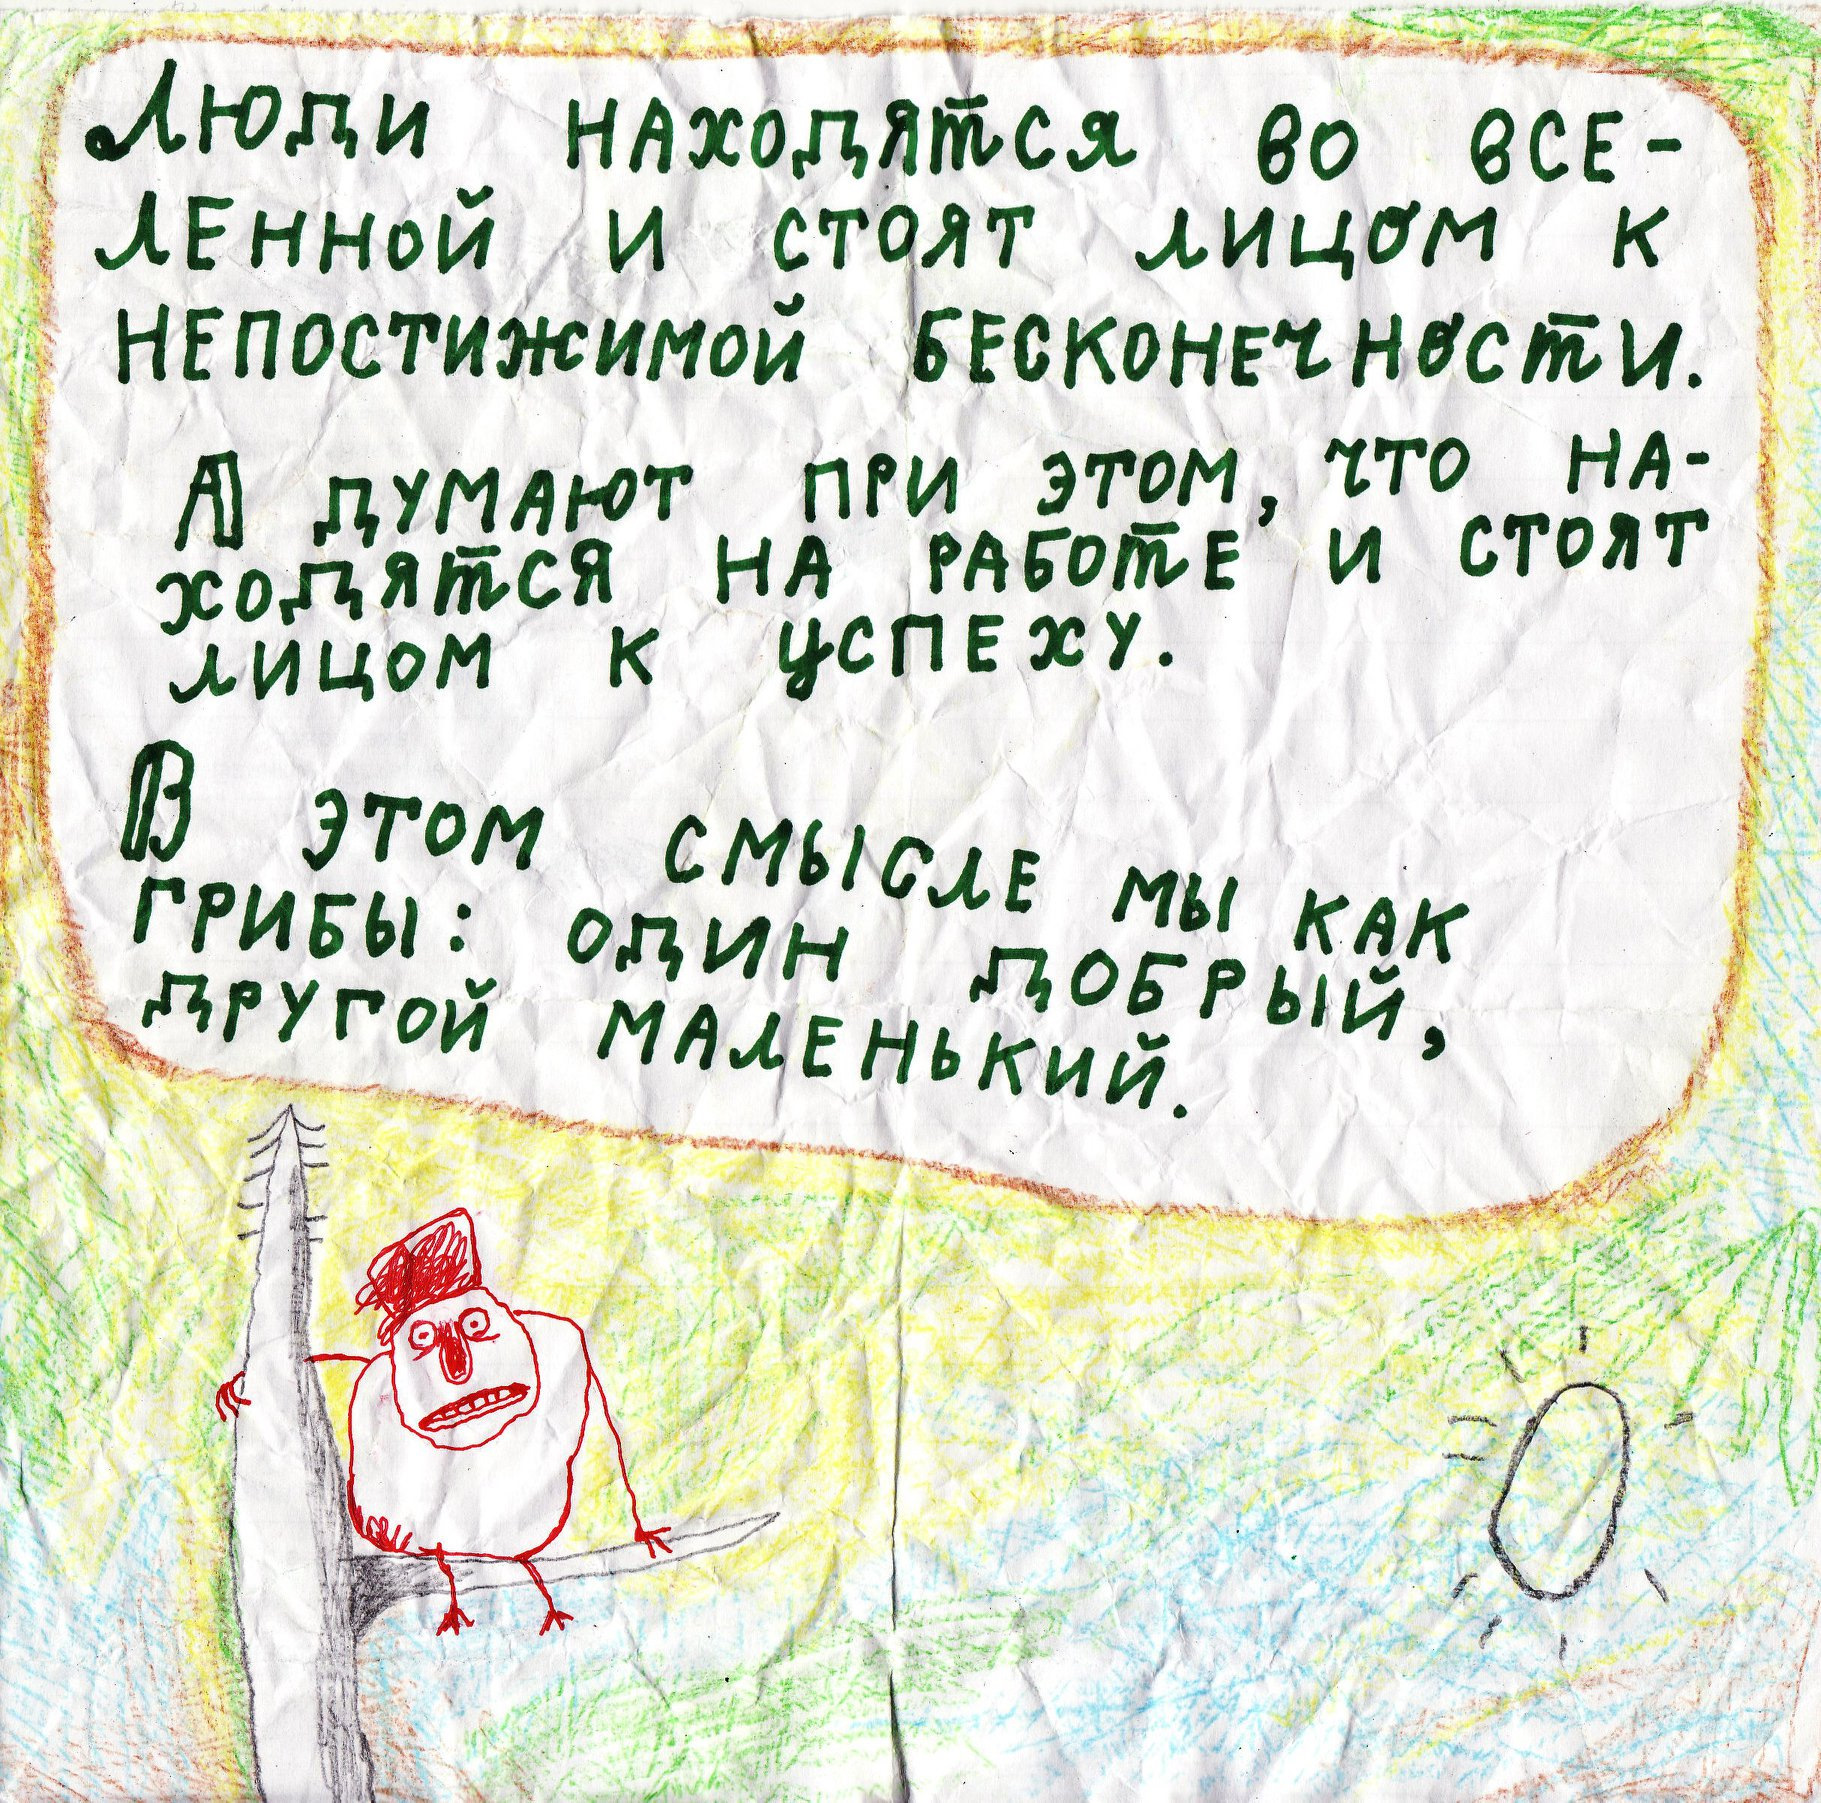 Люди находятся во все-
ленной и стоят лицом к
непостижимой бесконечности.
А думают при этом, что на-
ходятся на работе и стоят
лицом к успеху.
В этом смысле мы как
грибы: один добрый,
другой маленький.